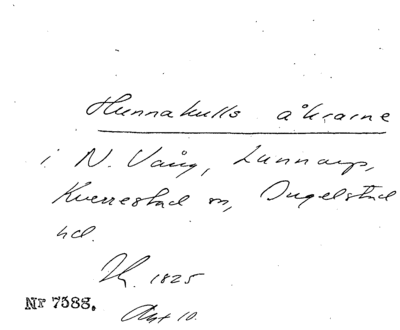 Hunnakulls åkrarne
i N. Vång, Lunnarp,
Kverrestad sn, Ingelstad
hd.
1825
Akt 10.
Nr 7588.